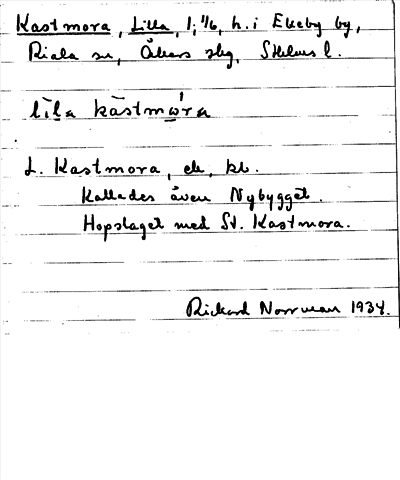 Kastmora, Lilla, 1, 1/6, h. i Ekeby by,
Riala sn, Åkers skg, Sthlms l.
lī̀la kàstmω̄́ra
L. Kastmora, ek, kb.
Kallades även Nybygget.
Hopslaget med St. Kastmora.
Rickard Norrman 1934.